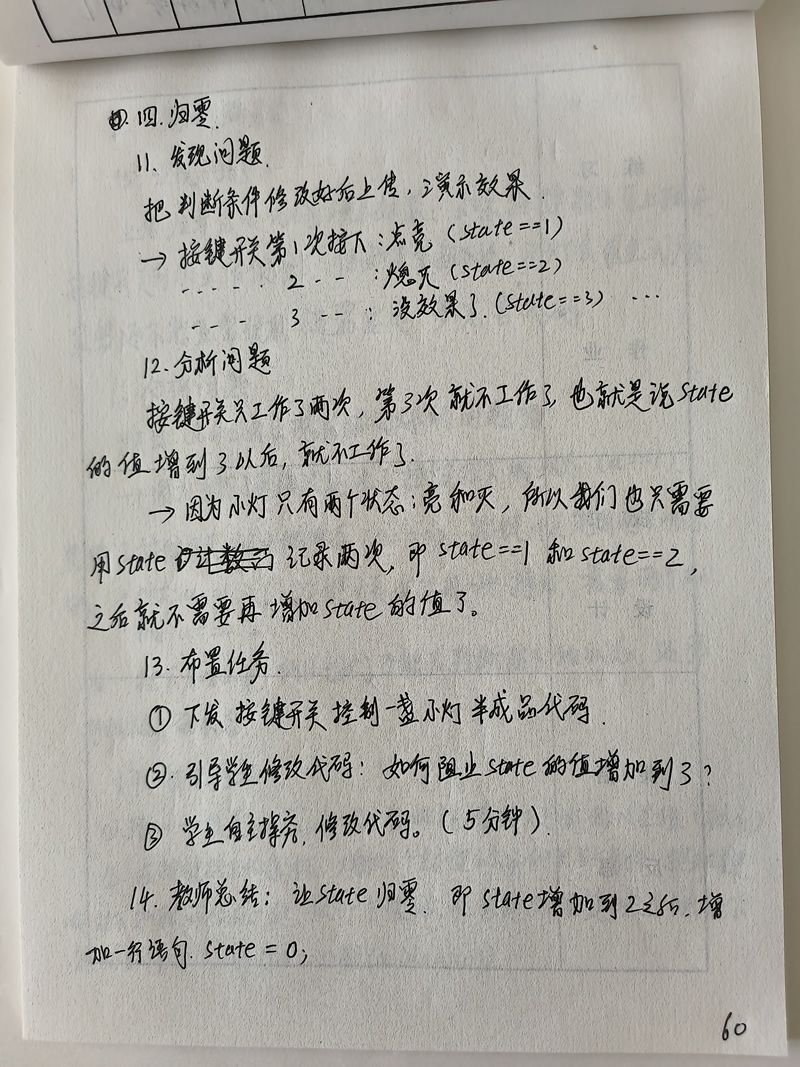 四.归零.
11.发现问题.
把判断条件修改好后上传,演示效果.
→ 按键开关第1次按下:点亮(state==1)
----- 2 -- :熄灭(state==2)
---- 3 -- :没效果了.(state==3) ...
12.分析问题
按键开关只工作了两次,第3次就不工作了,也就是说state
的值增到3以后,就不工作了.
→ 因为小灯只有两个状态:亮和灭,所以我们也只需要
用state 记录两次,即 state==1 和state==2,
之后就不需要再增加state的值了。
13.布置任务.
① 下发按键开关控制一盏小灯半成品代码.
②.引导学生修改代码:如何阻止state的值增加到3?
③ 学生自主探究,修改代码。(5分钟).
14.教师总结:让state归零.即state增加到2之后.增
加一行语句.state = 0;
60